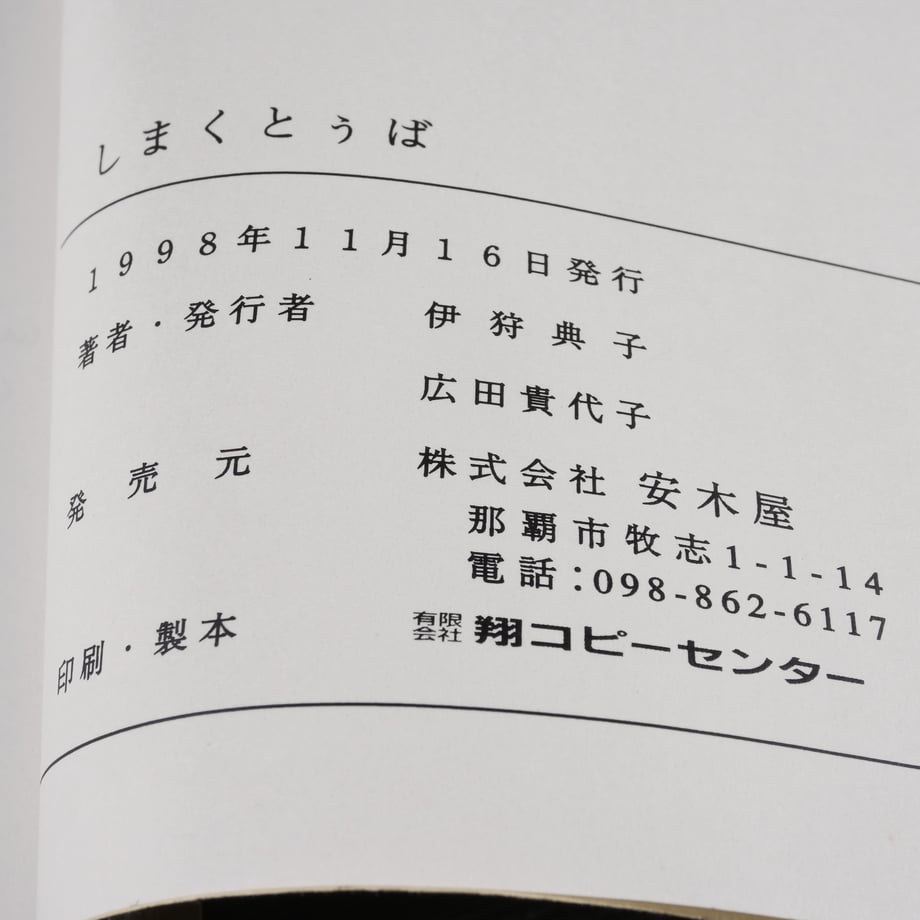 しまくとぅば
1998年11月16日発行
著者・発行者 伊狩典子
広田貴代子
発売元 株式会社 安木屋
那覇市牧志1-1-14
電話:098-862-6117
印刷・製本 有限会社 翔コピーセンター